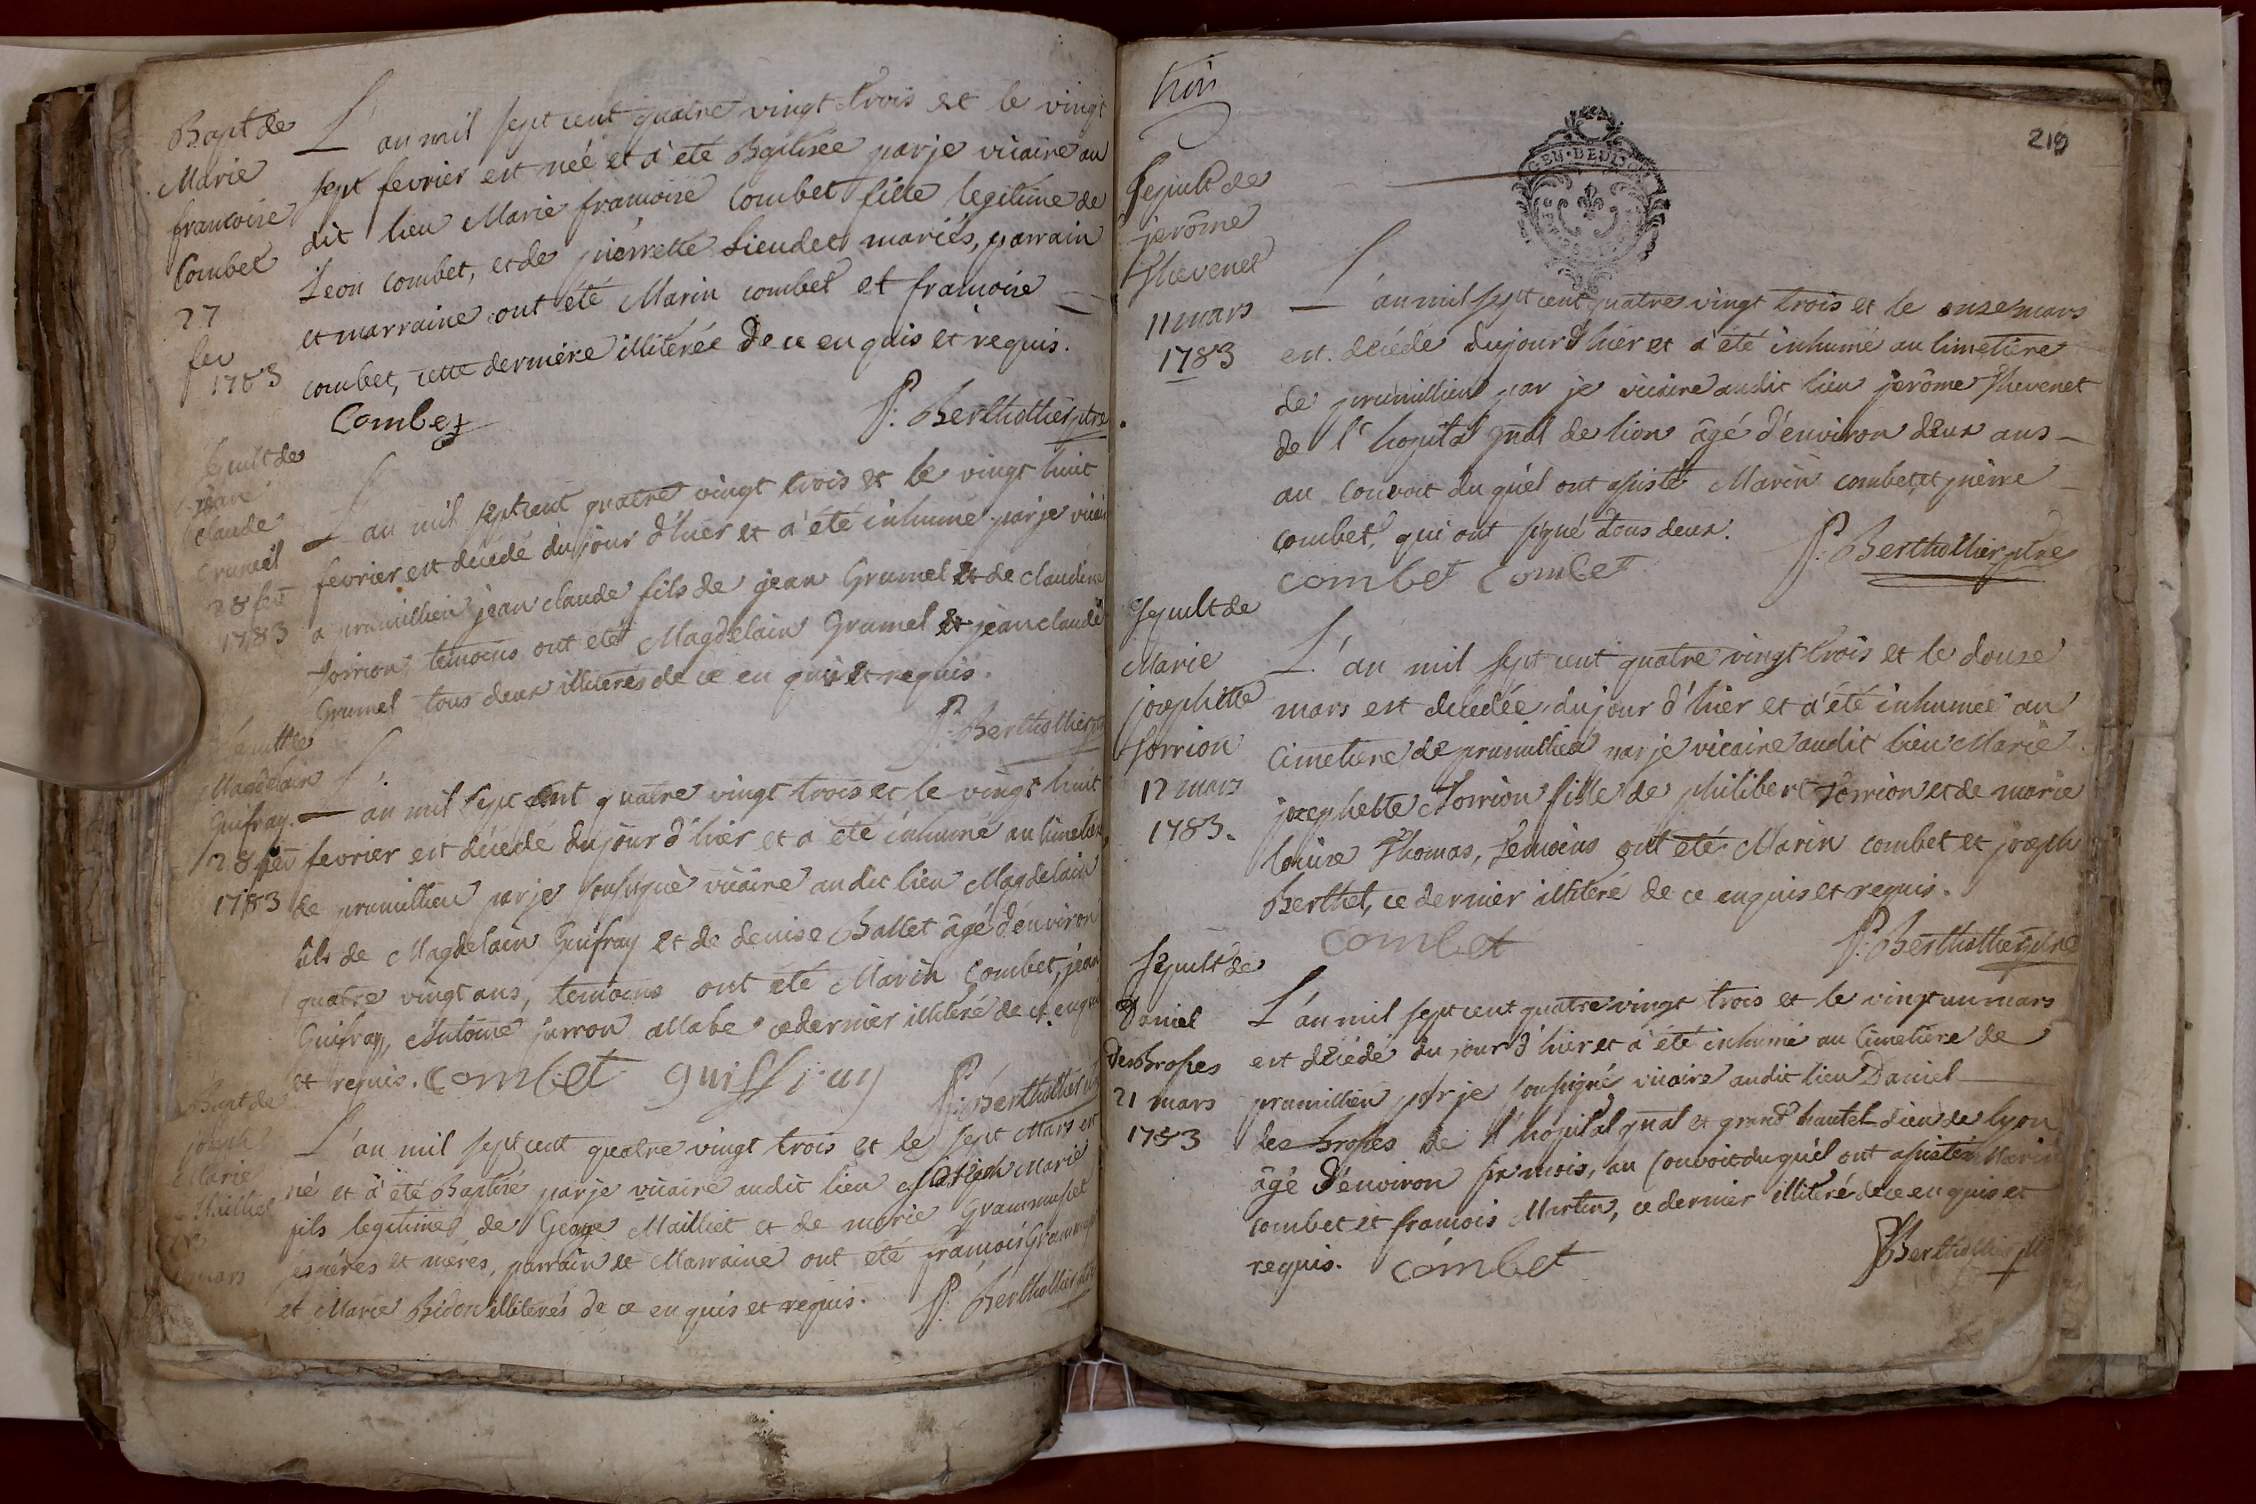 Bapt de
Marie
francoise
Combet
27
fev
1783
L'an mil sept cent quatre vingt trois et le vingt
sept fevrier est née et a été Baptisée par je vicaire au
dit lieu Marie francoise Combet fille legitime de
Leon combet, et de pierrette Lieudet mariés, parrain
et marraine ont été Marin combet et francoise
combet, cette derniére illitérée De ce enquis et requis.
Combet
P. Berthollier ptre
Sepult de
jean
claude
Grumel
28 fev
1783
L'an mil sept cent quatre vingt trois et le vingt huit
fevrier est décédé du jour d'hier et a été inhumé par je vicaire
a prumillieu jean claude fils de jean Grumel et de claudine
forrion, temoins ont eté Magdelain Grumel et jean claude
Grumel tous deux illiterés de ce enquis et requis.
P. Berthollier ptre
Magdelain
Guifray.
28 fev
1783
L'an mil sept cent quatre vingt trois et le vingt huit
fevrier est décédé du jour d'hier et a été inhumé au cimetiere
de prumillieu par je sousigné vicaire au dit lieu Magdelain
fils de Magdelain Guifray et de denise Ballet âgé d'environ
quatre vingt ans, temoins ont été Marin Combet, jean
Guifray, Antoine ce dernier illitéré de ce enquis
et requis. combet guiffray
P. Berthollier ptre
Bapt de
joseph
Marie
Mailliet
mars
L'an mil sept cent quatre vingt trois et le sept Mars est
né et a été Baptisé par je vicaire audit lieu joseph Marie
fils legitime de George Mailliet et de marie Grammuset
ses péres et méres, parrain et Marraine ont été francois Grammuset
et Marie Bidon illiterés de ce enquis et requis.
P. Berthollier ptre
trois
219
GEN·DE DIJON
Sepult de
jerôme
Thevenet
11 mars
1783
L'an mil sept cent quatre vingt trois et le onze mars
est décédé dujour d'hier et a été inhumé au cimetiere
de prumillieu par je vicaire audit lieu jerôme Thevenet
de l' hopital gnâl de lion âgé d'environ deux ans
au convoit duquél ont asisté Marin combet, et pierre
combet, qui ont signé tous deux.
P. Berthollier ptre
combet combet
Sepult de
Marie
josephette
forrion
12 mars
1783.
L'an mil sept cent quatre vingt trois et le douze
mars est décédée dujour d'hier et a été inhumée au
Cimetiere de prumillieu par je vicaire audit lieu Marie
josephette forrion fille de philibert forrion et de marie
louise Thomas, temoins ont eté Marin combet et joseph
Berthet, ce dernier illitéré de ce enquis et requis.
combet
P. Berthollier ptre
Sepult de
Daniel
Desbrosses
21 mars
1783
L'an mil sept cent quatre vingt trois et le vingt un mars
est décédé du jour d'hier et a été inhumé au Cimetiere de
prumillieu par je sousigné vicaire audit lieu Daniel
des brosses de l'hopital gnal et grand hautel dieu de lyon
âgé d'environ six mois, au Convoit duquél ont asisté Marin
combet et francois Martin, ce dernier illitéré de ce enquis et
requis. combet
P. Berthollier ptre